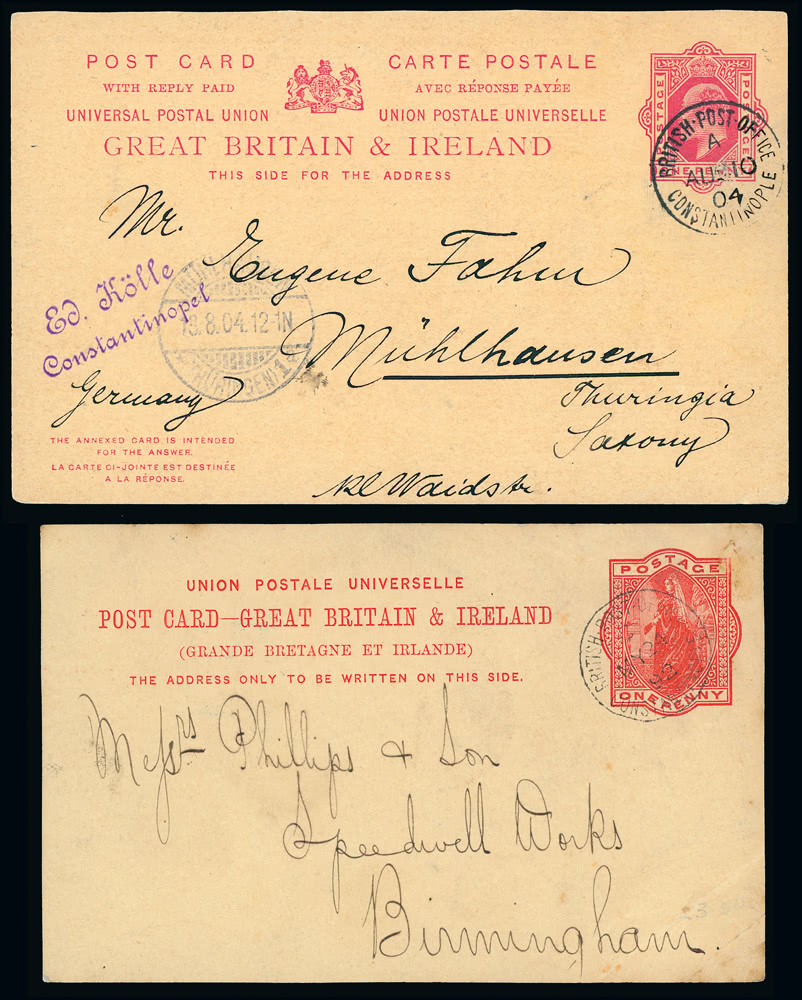 POST CARD
WITH REPLY PAID
UNIVERSAL POSTAL UNION
CARTE POSTALE
AVEC RÉPONSE PAYÉE
UNION POSTALE UNIVERSELLE
GREAT BRITAIN & IRELAND
THIS SIDE FOR THE ADDRESS
POSTAGE
BRITISH·POST·OFFICE
A
AU 10
04
CONSTANTINOPLE
Mr. Eugene Fahm
Ed. Kölle
Constantinopel
13.8.04.12-1N
Mühlhausen
Germany
Thuringia
Saxony
THE ANNEXED CARD IS INTENDED
FOR THE ANSWER.
LA CARTE CI-JOINTE EST DESTINÉE
A LA RÉPONSE.
UNION POSTALE UNIVERSELLE
POST CARD—GREAT BRITAIN & IRELAND
(GRANDE BRETAGNE ET IRLANDE)
THE ADDRESS ONLY TO BE WRITTEN ON THIS SIDE.
POSTAGE
ONE PENNY
BRITISH·
Messrs Phillips & Son
Speedwell Works
Birmingham.